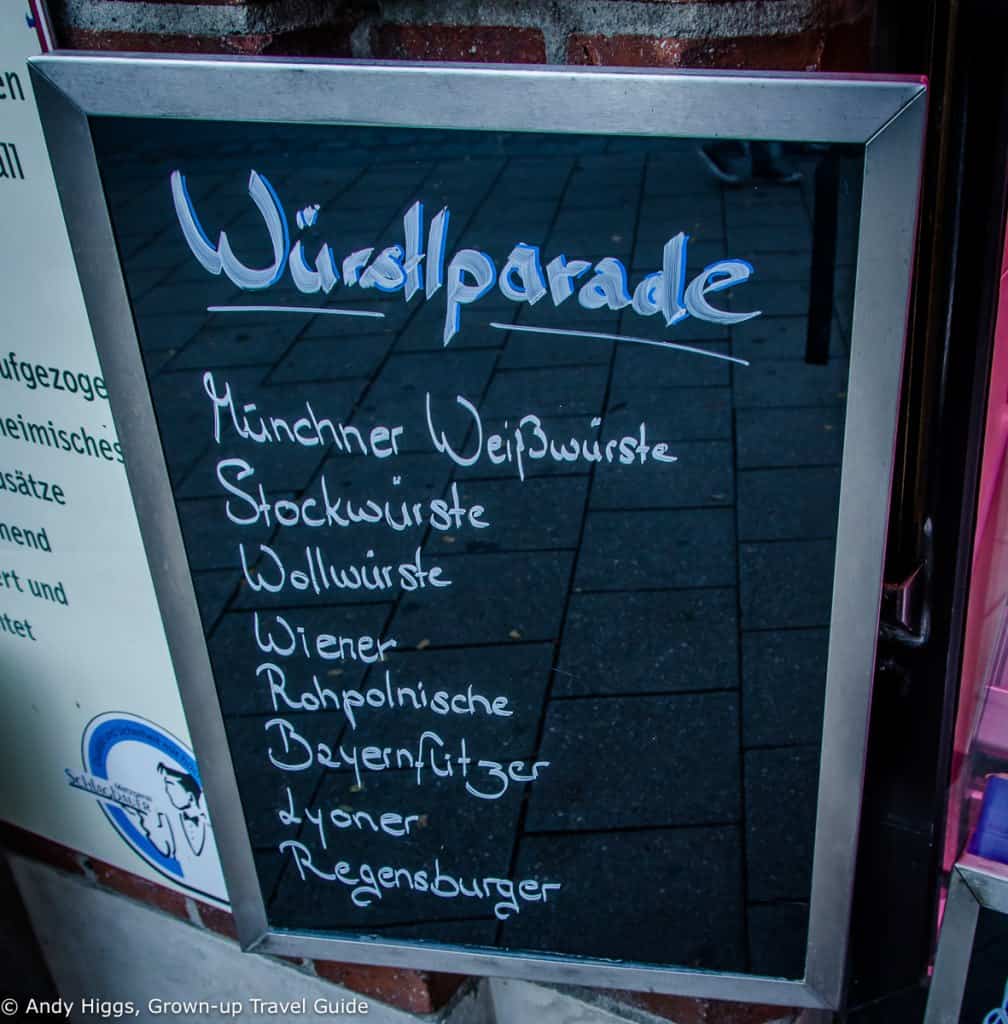 en
all
ufgezoge
heimisches
usätze
nend
ert und
itet
Würstlparade
Münchner Weißwürste
Stockwürste
Wollwürste
Wiener
Rohpolnische
Bayernflitzer
Lyoner
Regensburger
© Andy Higgs, Grown-up Travel Guide